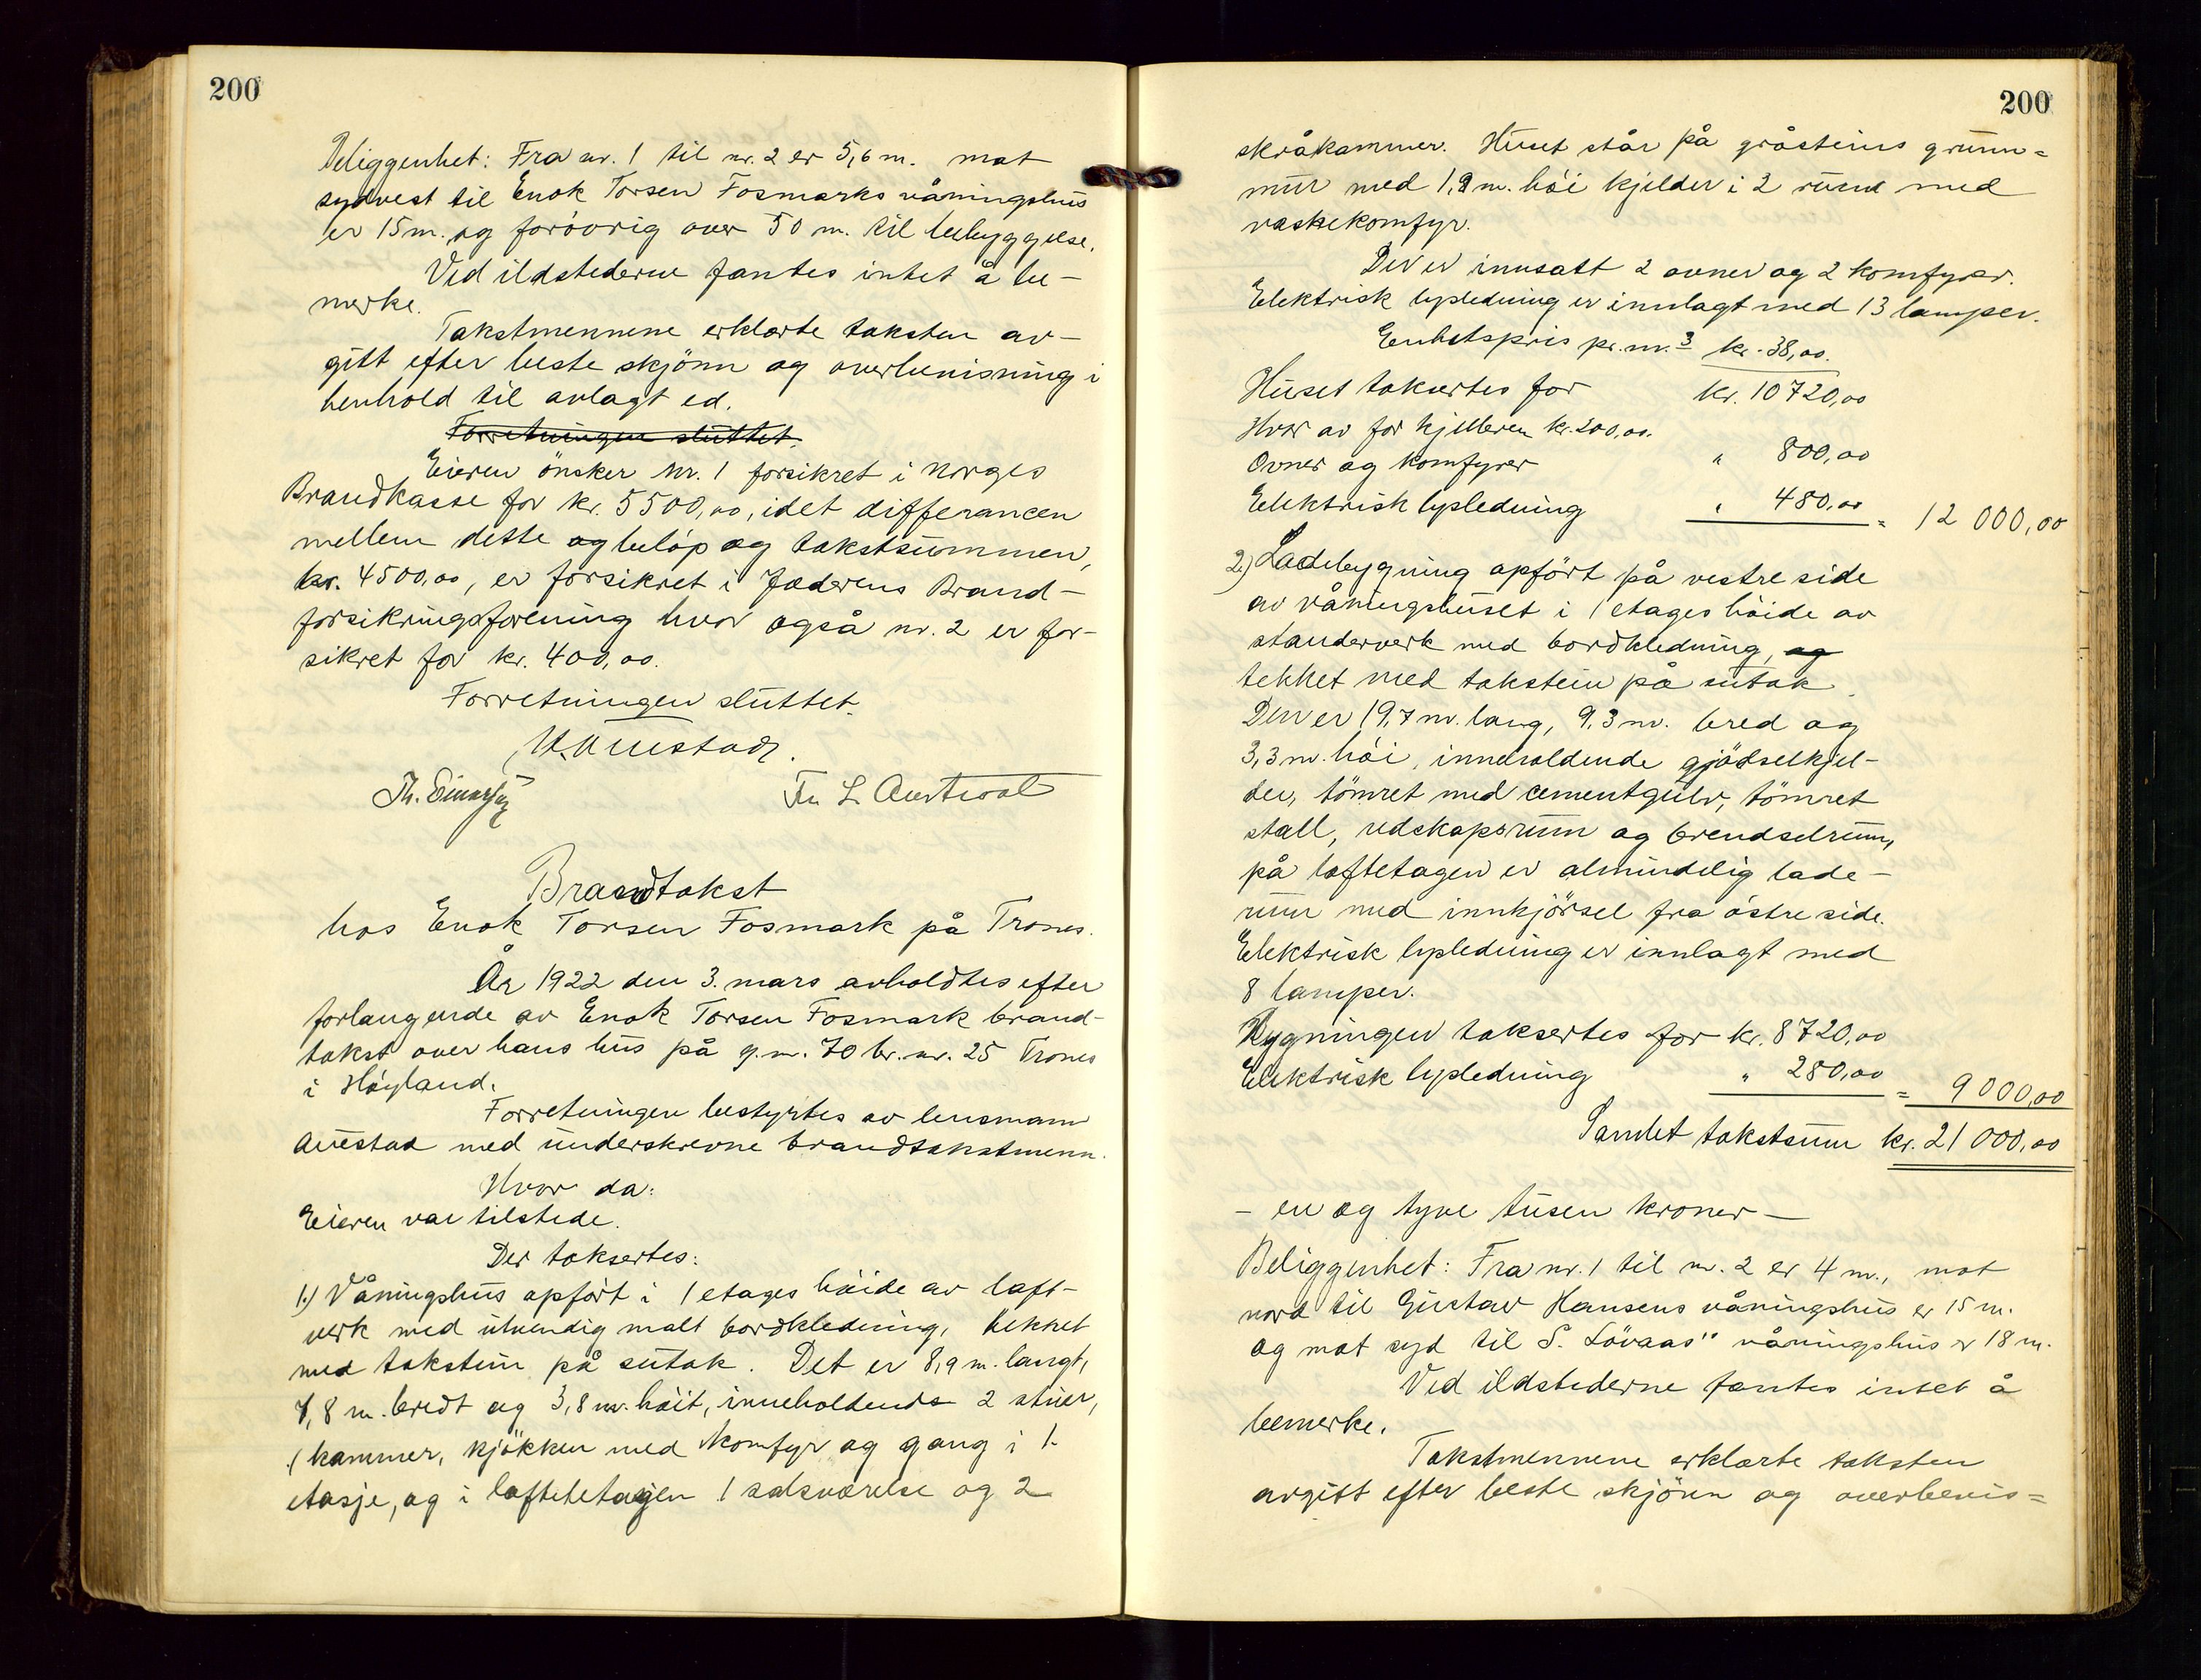 200
Beliggenhet: Fra nr. 1 til nr. 2 er 5,6 m. mot
sydvest til Enok Torsen Fosmarks våningshus
er 15 m. og forövrig over 50 m. til bebyggelse.
Ved ildstederne fantes intet å be-
merke.
Takstmennene erklærte taksten av-
gitt efter beste skjönn og overbevisning i
henhold til avlagt ed.
Forretningen sluttet.
Eieren önsker nr. 1 forsikret i Norges
Brandkasse for kr. 5500,00, idet differancen
mellem dette og belöp og takstsummen,
kr. 4500,00, er forsikret i Jæderens Brand-
forsikringsforening hvor også nr. 2 er for-
sikret for kr. 400,00.
Forretningen sluttet.
Auestad.
Th. Einarsen
L. Austvoll
Brandtakst
hos Enok Torsen Fosmark på Trones.
År 1922 den 3. mars avholdtes efter
forlangende av Enok Torsen Fosmark brand-
takst over hans hus på g.nr. 70 br.nr. 25 Trones
i Höyland.
Forretningen bestyrtes av lensmann
Auestad med underskrevne brandtakstmenn.
Hvor da:
Eieren var tilstede.
Der taksertes:
1.) Våningshus opfört i 1 etages höide av laft-
verk med utvendig malt bordkledning, tekket
med takstein på sutak. Det er 8,9 m. langt,
7,8 m. bredt og 3,8 m. höit, inneholdende 2 stuer,
1 kammer, kjökken med komfyr og gang i 1.
etasje, og i loftetetagen 1 salsværelse og 2
200
skråkammer. Huset står på gråsteins grunn=
mur med 1,9 m. höi kjelder i 2 rum med
vaskekomfyr.
Der er innsatt 2 ovner og 2 komfyrer.
Elektrisk lysledning er innlagt med 13 lamper.
Enhetspris pr. m.3 kr. 38,00.
Huset taksertes for kr. 10720,00
Hvor av for kjelleren kr. 200,00.
Ovner og komfyrer " 800,00
Elektrisk lysledning " 480,00 = 12 000,00
2.) Ladebygning opfört på vestre side
av våningshuset i 1 etages höide av
standerverk med bordkledning, og
tekket med takstein på sutak.
Den er 19,7 m. lang, 9,3 m. bred og
3,3 m. höi, inneholdende gjödselkjel-
der, tömret med cementgulv, tömret
stall, redskapsrum og brendselrum,
på loftetagen er almindelig lade-
rum med innkjörsel fra östre side.
Elektrisk lysledning er innlagt med
8 lamper.
Bygningen taksertes for kr. 8720,00
Elektrisk lysledning " 280,00 = 9 000,00
Samlet takstsum kr. 21 000,00
- en og tyve tusen kroner -
Beliggenhet: Fra nr. 1 til nr. 2 er 4 m., mot
nord til Gustav Hansens våningshus er 15 m.
og mot syd til S. Lövaas" våningshus er 18 m.
Ved ildstederne fantes intet å
bemerke.
Takstmennene erklærte taksten
avgitt efter beste skjönn og overbevis=